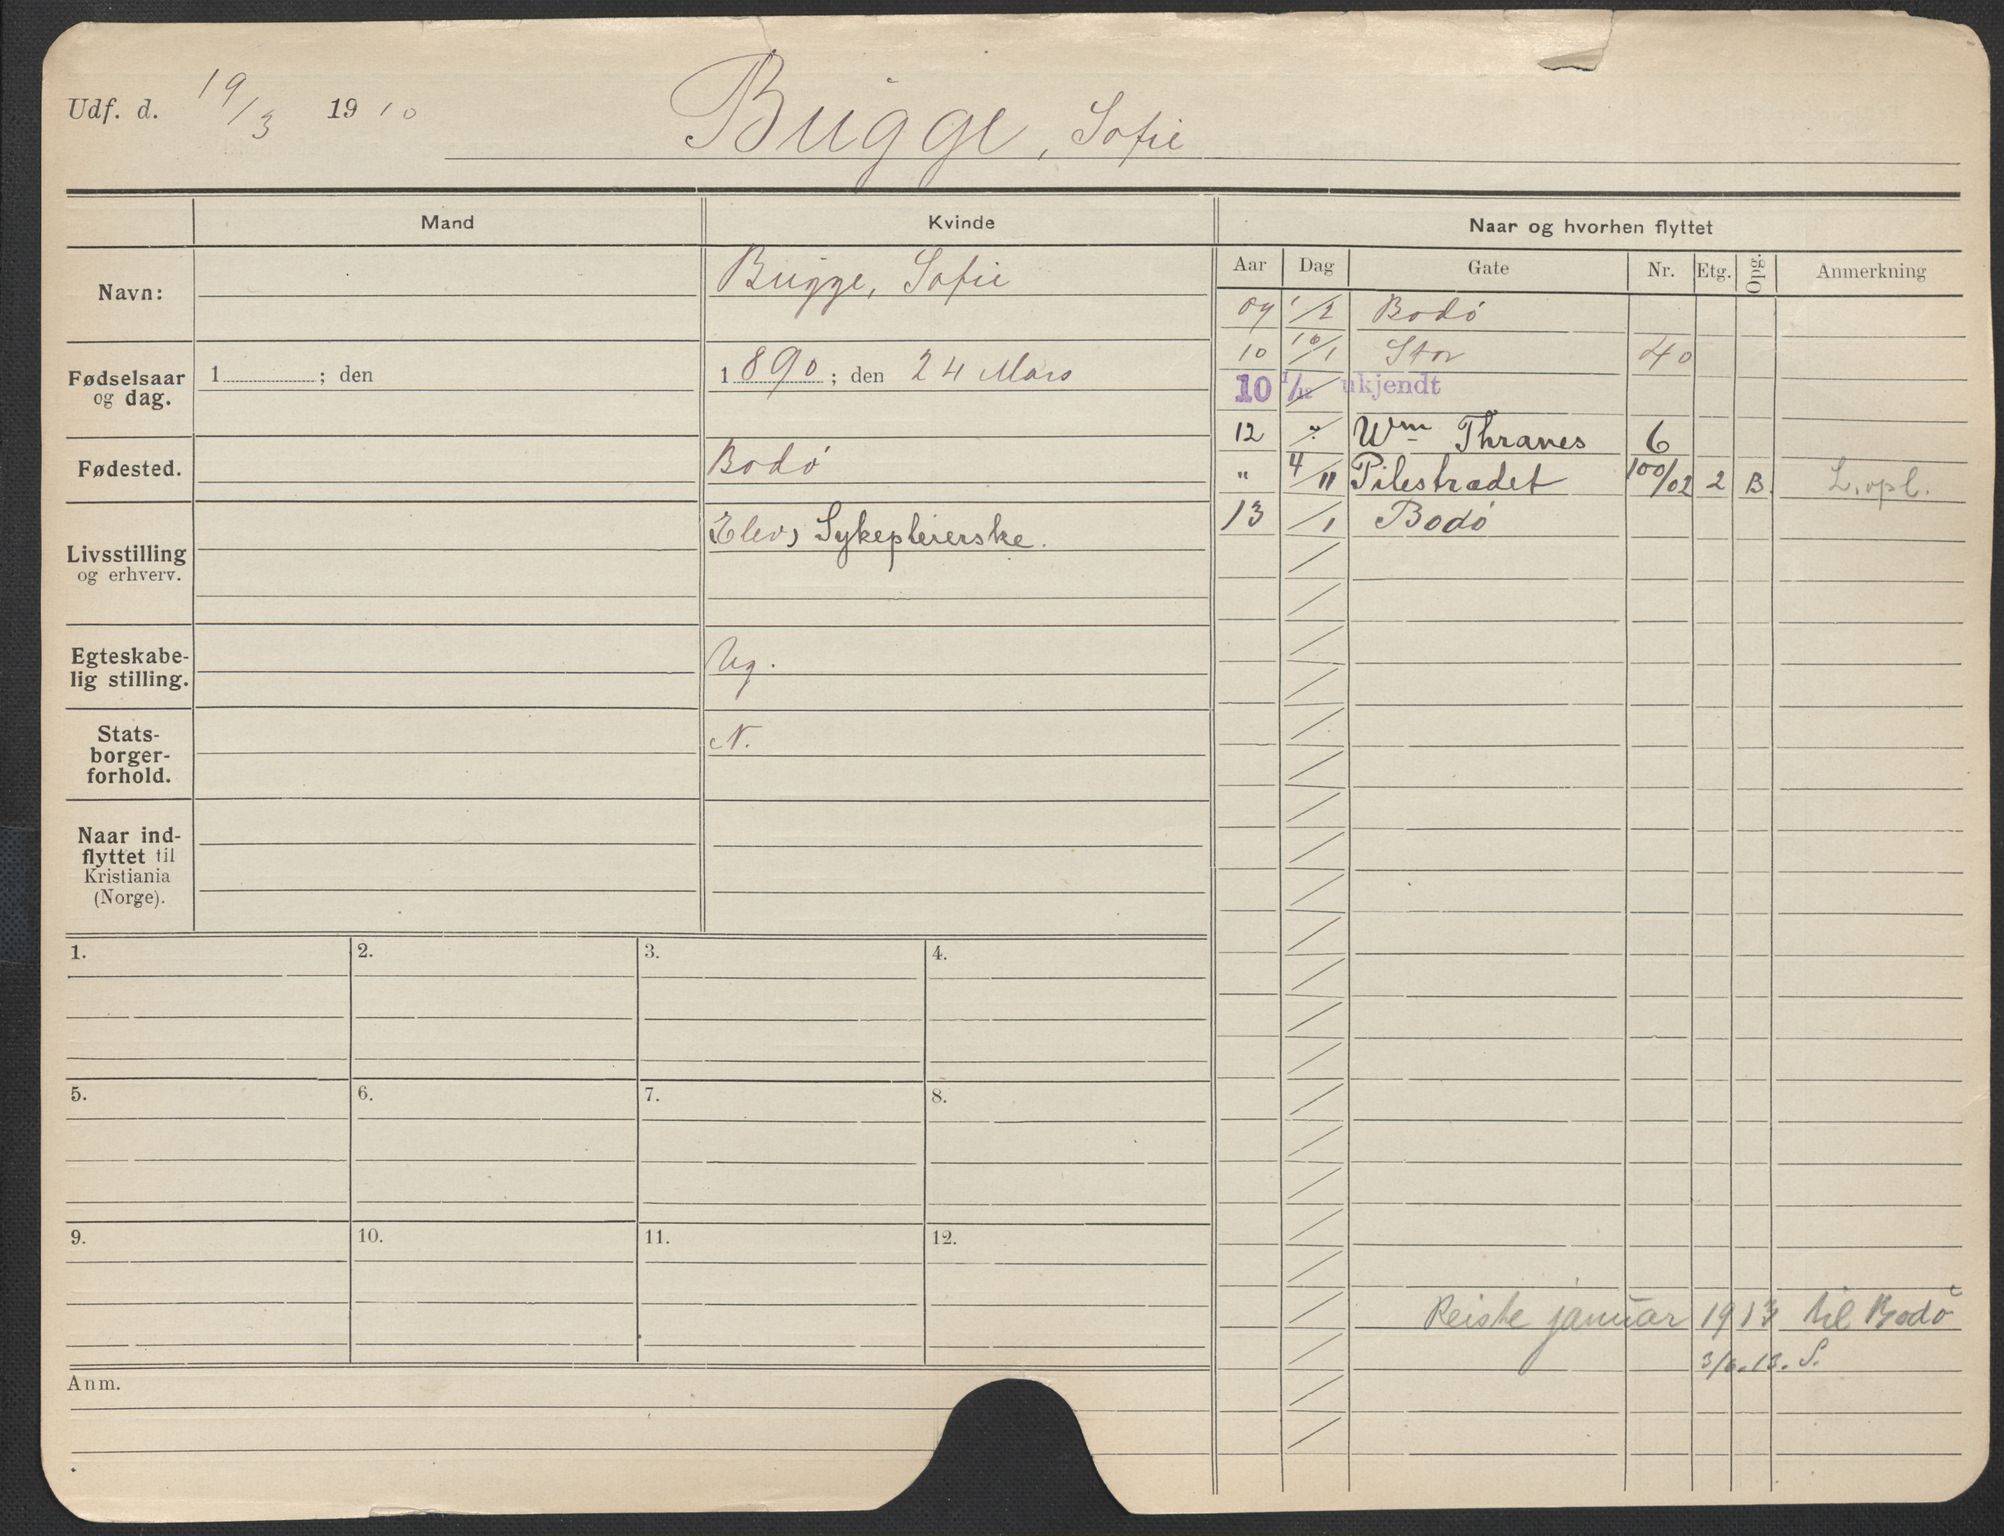 Udf. d. 19/3 1910
Bugge, Sofie
Mand
Kvinde
Naar og hvorhen flyttet
Navn:
Bugge, Sofie
Fødselsaar og dag.
1 ; den
1890; den 24 Mars
Fødested.
Bodø
Livsstilling og erhverv.
Elev, Sykepleierske.
Egteskabe-
lig stilling.
Ug.
Stats-
borger-
forhold.
N.
Naar ind-
flyttet til
Kristiania
(Norge).
Aar Dag Gate Nr. Etg. Opg. Anmerkning
09 1/2 Bodø
10 10/1 Stor 40
10 1/12 ukjendt
12 " Wm Thranes 6
" 4/11 Pilestrædet 100/02 2 B. L. opl.
13 /1 Bodø
1. 2. 3. 4.
5. 6. 7. 8.
9. 10. 11. 12.
Reiste januar 1913 til Bodø
3/6.13. S.
Anm.